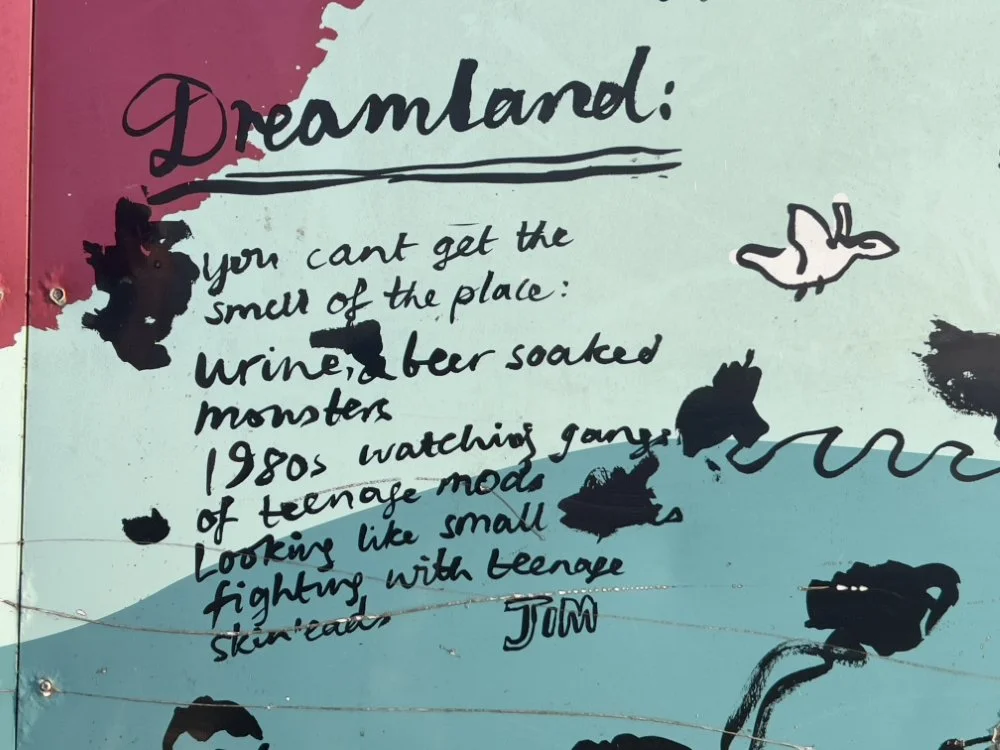 Dreamland:
you cant get the
smell of the place:
urine, & beer soaked
monsters
1980s watching gangs
of teenage mods
Looking like small
fighting with teenage
skin'eads
JIM